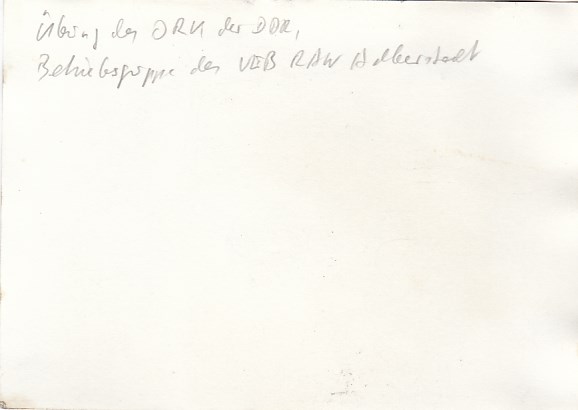 Übung des DRK der DDR,
Betriebsgruppe des VEB RAW Halberstadt